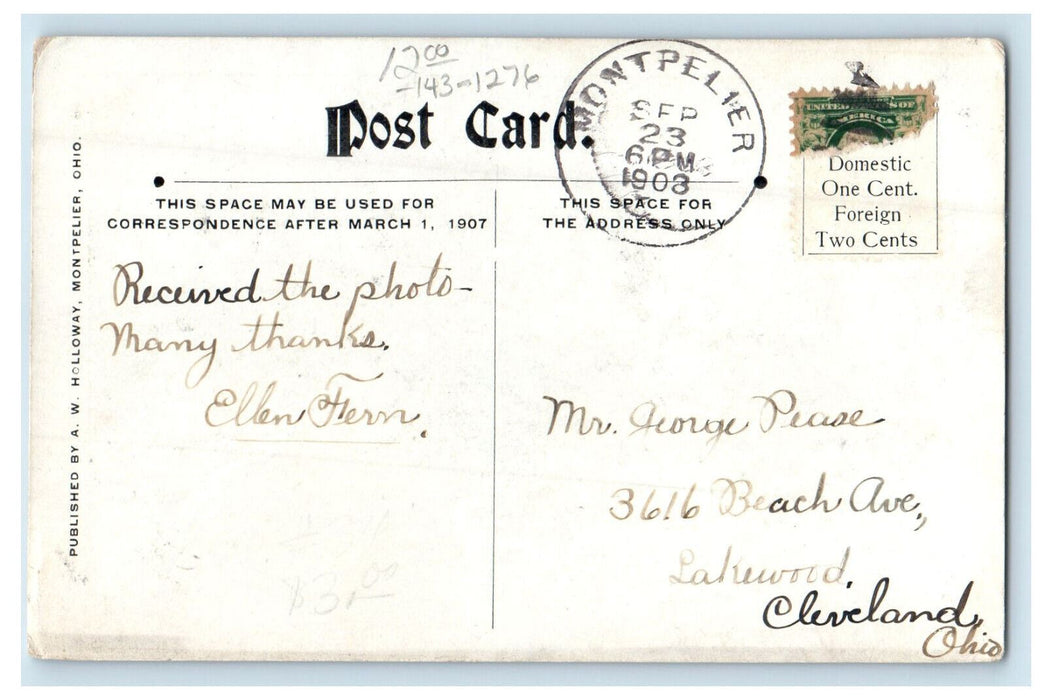 12.00
-143-1276
Post Card.
MONTPELIER
SEP
23
6 PM
1908
UNITED STATES OF
AMERICA
Domestic
One Cent.
Foreign
Two Cents
THIS SPACE MAY BE USED FOR
CORRESPONDENCE AFTER MARCH 1, 1907
THIS SPACE FOR
THE ADDRESS ONLY
PUBLISHED BY A. W. HOLLOWAY, MONTPELIER, OHIO.
Received the photo-
Many thanks.
Ellen Fern.
$3.00
Mr. George Pease
3616 Beach Ave,
Lakewood,
Cleveland,
Ohio